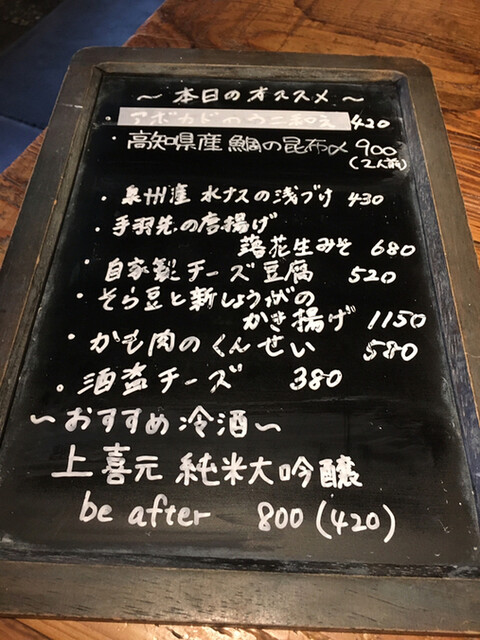 ～本日のオススメ～
・アボカドのウニ和え 420
・高知県産 鯛の昆布〆 900
(2人前)
・泉州産 水ナスの浅づけ 430
・手羽先の唐揚げ
落花生みそ 680
・自家製チーズ豆腐 520
・そら豆と新しょうがの
かき揚げ 1150
・かも肉のくんせい 580
・酒盗チーズ 380
～おすすめ冷酒～
上喜元 純米大吟醸
be after 800 (420)